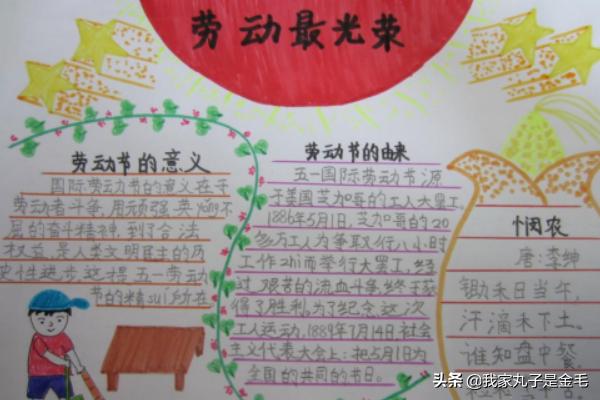 劳动最光荣
劳动节的意义
国际劳动节的意义在于
劳动者斗争,用顽强、英yǒng不
屈的奋斗精神,到了合法
权益,是人类文明民主的历
史性进步这揭五一劳动
节的精sui所在
劳动节的由来
五一国际劳动节源
于美国芝加哥的工人大罢工,
1886年5月1日,芝加哥的20
多万工人为争取行八小时
工作zhi而举行大罢工,经
过艰苦的流血斗争终于获
得了胜利。为了纪念这次
工人运动,1889年7月14日,社会
主义代表大会上:把5月1日为
全国的共同的节日。
悯农
唐:李绅
锄禾日当午,
汗滴禾下土。
谁知盘中餐,
头条 @我家丸子是金毛